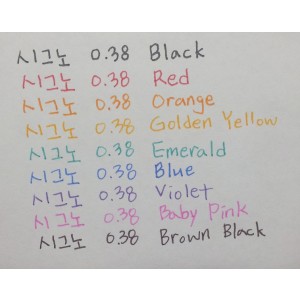 시그노 0.38 Black
시그노 0.38 Red
시그노 0.38 Orange
시그노 0.38 Golden Yellow
시그노 0.38 Emerald
시그노 0.38 Blue
시그노 0.38 Violet
시그노 0.38 Baby Pink
시그노 0.38 Brown Black